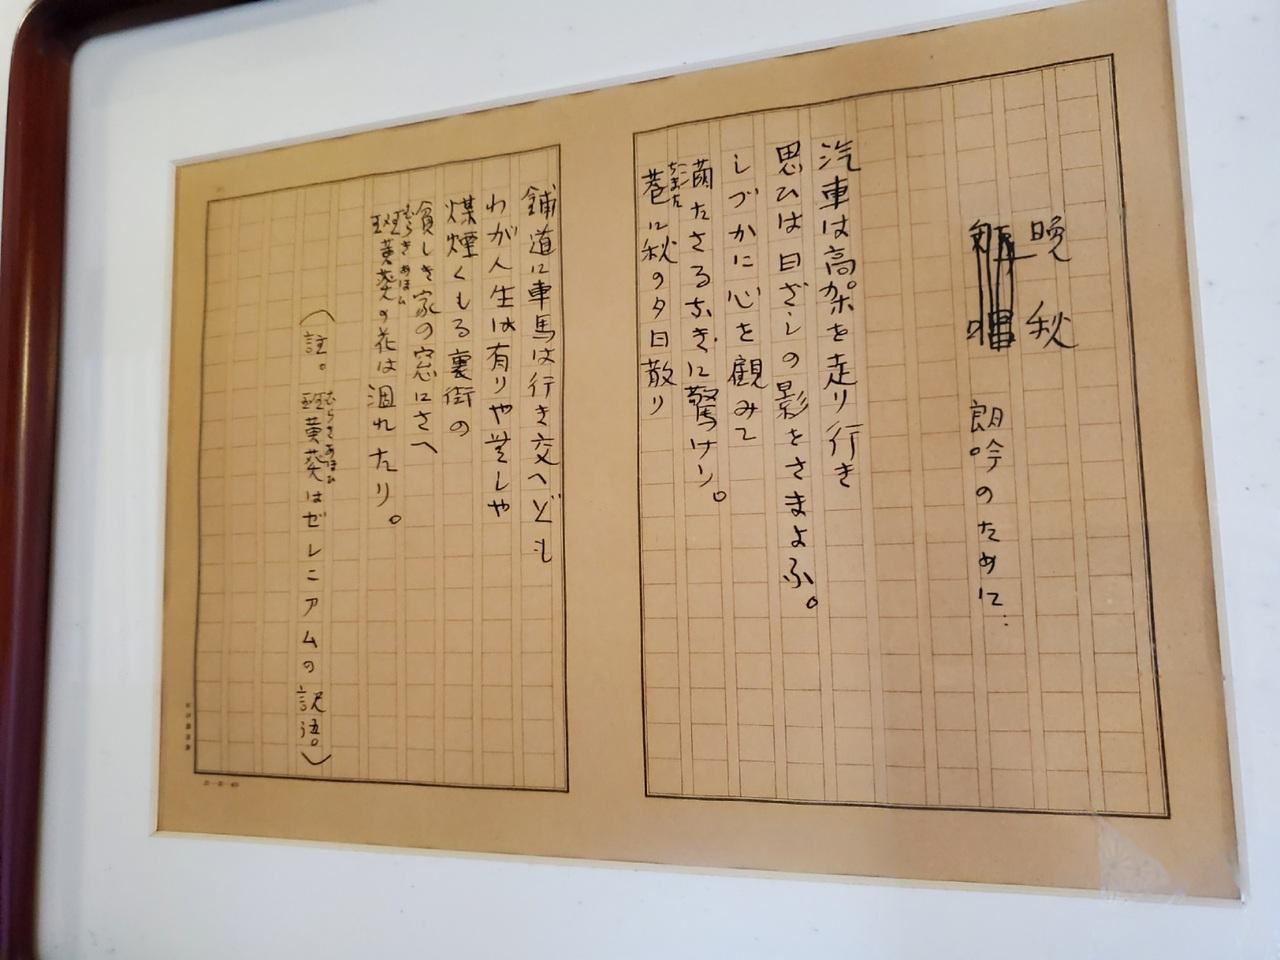 晩秋
朗吟のために‥
汽車は高架を走り行き
思ひは日ざしの影をさまよふ。
しづかに心を観みて
満たさるなきに驚けり。
巷に秋の夕日散り
ちまた
鋪道に車馬は行き交へども
わが人生は有りや無しや
煤煙くもる裏街の
貧しき家の窓にさへ
斑黄葵の花は涸れたり。
むらきあほひ
(註。斑黄葵はゼレニアムの訳語。)
むらきあほひ